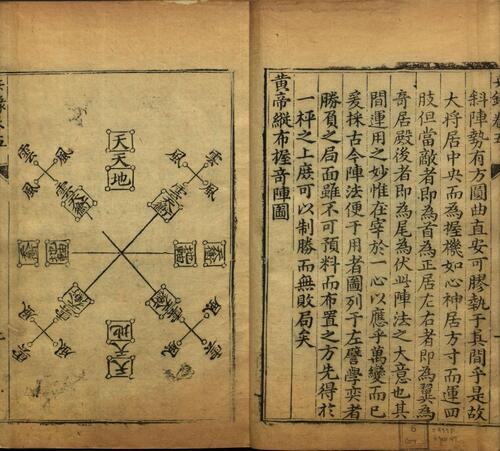 斜陣勢有方圓曲直安可膠執于其間乎是故
大將居中央而為握機如心神居方寸而運四
肢但當敵者即為首為正居左右者即為翼為
奇居殿後者即為尾為伏此陣法之大意也其
間運用之妙惟在宰於一心以應乎萬變而已
爰採古今陣法便于用者圖列于左譬學奕者
勝負之局面雖不可預料而布置之方先得於
一枰之上庶可以制勝而無敗局矣
黃帝縱布握奇陣圖
天
天
地
雲
風
風
雲
風
風
雲
風
風
雲
地
天
天